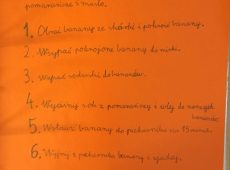 pomarańcze i masło.
1. Obrać banany ze skórki i pokroić banany.
2. Wsypać pokrojone banany do miski.
3. Wsypać rodzynki do bananów.
4. Wycisnąć sok z pomarańczy i wlej do naszych bananów.
5. Wstaw banany do piekarnika na 15 minut.
6. Wyjmij z piekarnika banany i zjadaj.